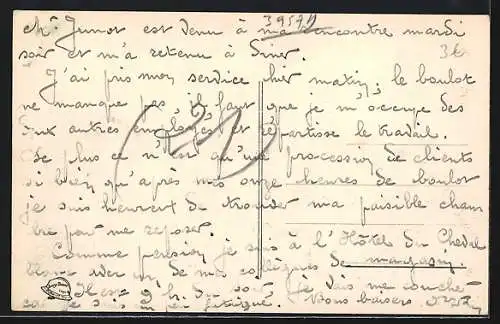 39571
Mr. Junot est venu à ma rencontre mardi
soir et m'a retenu à diner.
J'ai pris mon service hier matin, le boulot
ne manque pas, il faut que je m'occupe des
deux autres employés et répartisse le travail.
De plus ce n'est qu'une procession de clients
si bien qu'après mes onze heures de boulot
je suis heureux de trouver ma paisible cham
bre pour me reposer.
Comme pension je suis à l'Hôtel du Cheval
blanc avec un de mes collègues de magasin.
Il est 9 h. du soir, je vais me coucher
car je suis un peu fatigué. Bons baisers